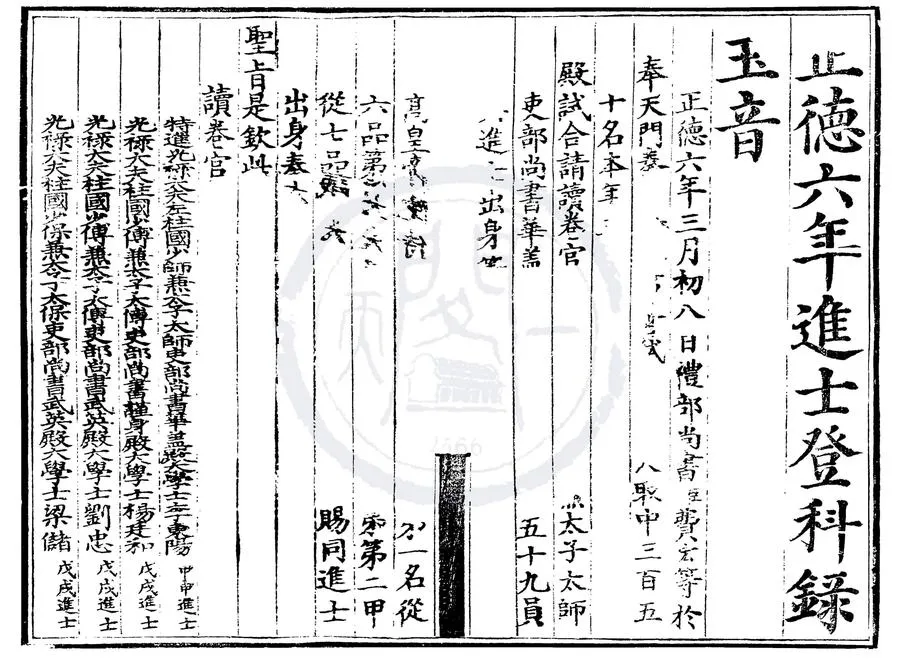 正德六年進士登科錄
玉音
正德六年三月初八日禮部尚書臣費宏等於
奉天門奏 取中三百五
十名本年
殿試合請讀卷官 太子太師
吏部尚書華盖 五十九員
進士出身等
高皇 一名從
六品第 第二甲
從七品 賜同進士
出身奏
聖旨是欽此
讀卷官
特進光祿大夫左柱國少師兼太子太師吏部尚書華盖殿大學士李東陽 甲申進士
光祿大夫柱國少傅兼太子太傅吏部尚書謹身殿大學士楊廷和 戊戌進士
光祿大夫柱國少傅兼太子太傅吏部尚書武英殿大學士劉忠 戊戌進士
光祿大夫柱國少保兼太子太保吏部尚書武英殿大學士梁儲 戊戌進士